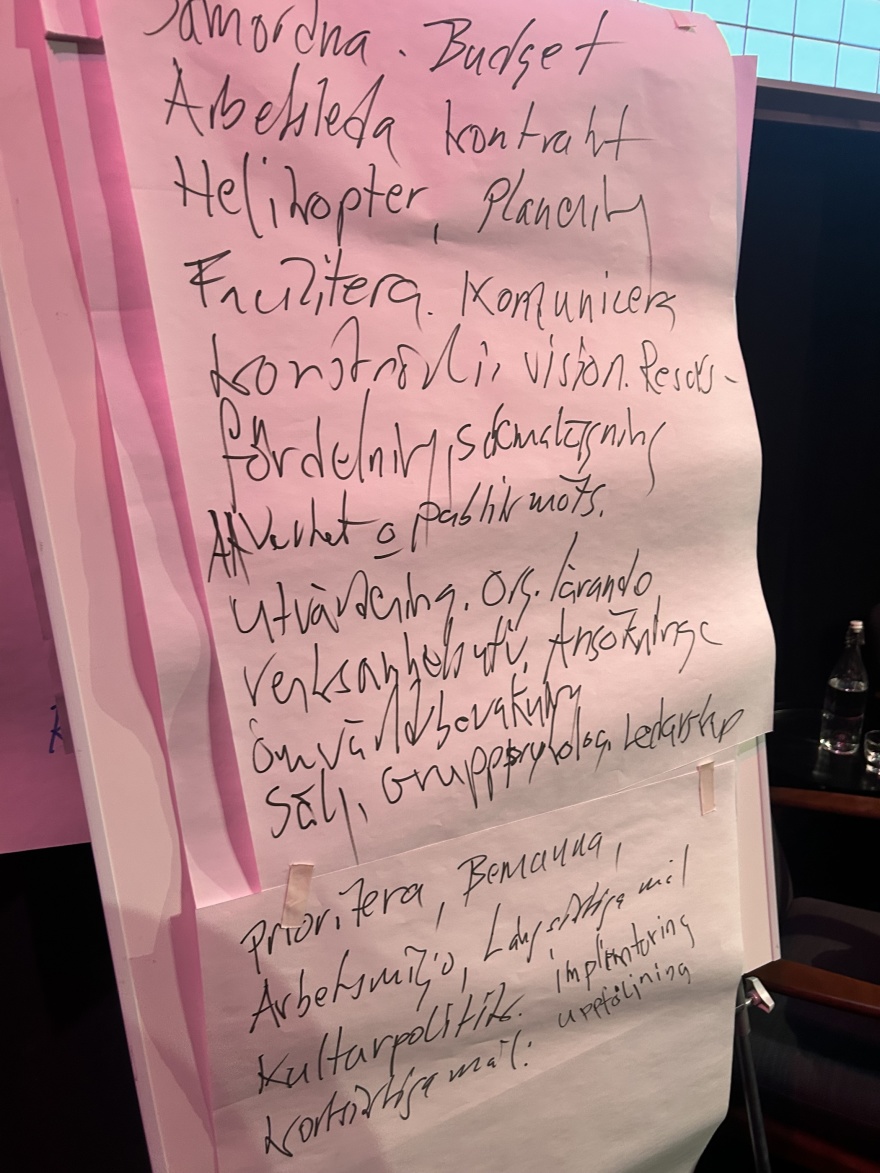 Samordna. Budget
Arbetsleda kontrakt
Helikopter, Planering
Facilitera. Komunicera
konstnärli, vision. Resurs-
fördelning, schemaläggning
Nätverket o publik möts.
Utvärdering. Org. lärande
Verksamhetsutv, Ansökninga
Omvärldsbevakning
Sälj, Grupppsykolog, Ledarskap
Prioritera, Bemanna,
Arbetsmiljö, Långsiktiga mål
Kulturpolitik. implentering
kortsiktiga mål: uppföljning